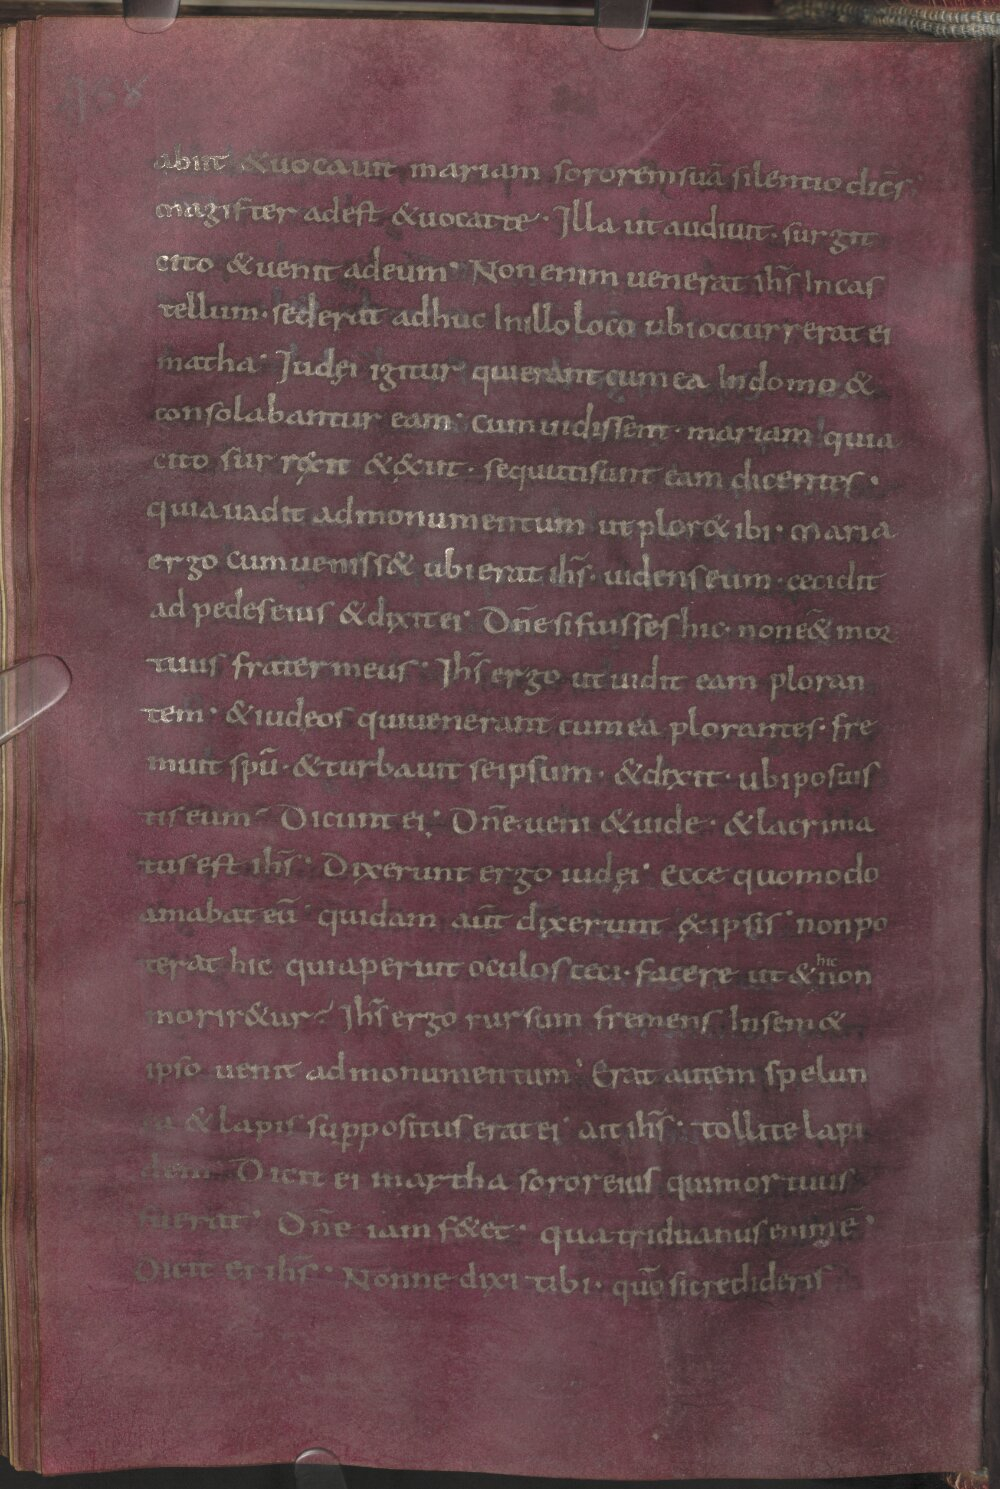 abiit & uocauit mariam sororem suā silentio dicēs
magister adest & uocat te· Illa ut audiuit· surgit
cito & uenit ad eum· Non enim uenerat ih̄s In cas
tellum· sederat adhuc In illo loco ubi occurrerat ei
matha· Iudęi igitur qui erant cum ea In domo &
consolabantur eam· cum uidissent· mariam quia
cito surrex̨it & &xiit· secuti sunt eam dicentes·
quia uadit ad monumentum ut plor& ibi· Maria
ergo cum ueniss& ubi erat ih̄s· uidens eum· cecidit
ad pedes eius & dixit ei· Dn̄e si fuisses hic· non eē& mor
tuus frater meus· Ih̄s ergo ut uidit eam ploran
tem· & iudeos qui uenerant cum ea plorantes· fre
muit spū· & turbauit se ipsum· & dixit· ubi posuis
tis eum? Dicunt ei· Dn̄e ueni & uide· & lacrima
tus est ih̄s· Dixerunt ergo iudęi· ecce quomodo
amabat eū· quidam aūt dixerunt ex ipsis· non po
terat hic qui aperuit oculos ceci· facere ut & hic non
morir&ur? Ih̄s ergo rursum fremens In sem&
ipso uenit ad monumentum· Erat autem spelun
ca & lapis suppositus erat ei· ait ih̄s· tollite lapi
dem· Dicit ei martha soror eius qui mortuus
fuerat· Dn̄e iam f&et· quatriduanus enim ē·
Dicit ei ih̄s· Nonne dixi tibi· quō si credideris